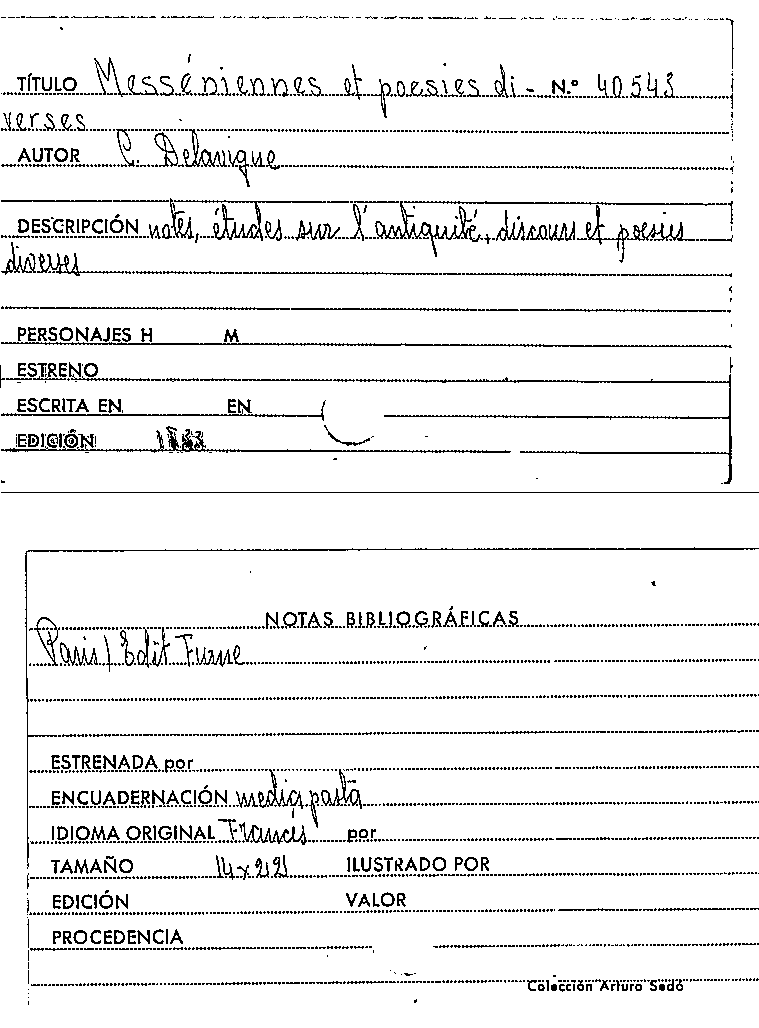 TÍTULO Messéniennes et poesies di- N.º 40543
verses
AUTOR C. Delavigne
DESCRIPCIÓN notes, études sur l'antiquité, discours et poesies
diverses
PERSONAJES H M
ESTRENO
ESCRITA EN EN
EDICIÓN
NOTAS BIBLIOGRÁFICAS
Paris / Edit Furne
ESTRENADA por
ENCUADERNACIÓN media pasta
IDIOMA ORIGINAL Francés por
TAMAÑO ILUSTRADO POR
EDICIÓN VALOR
PROCEDENCIA
Colección Arturo Sedó